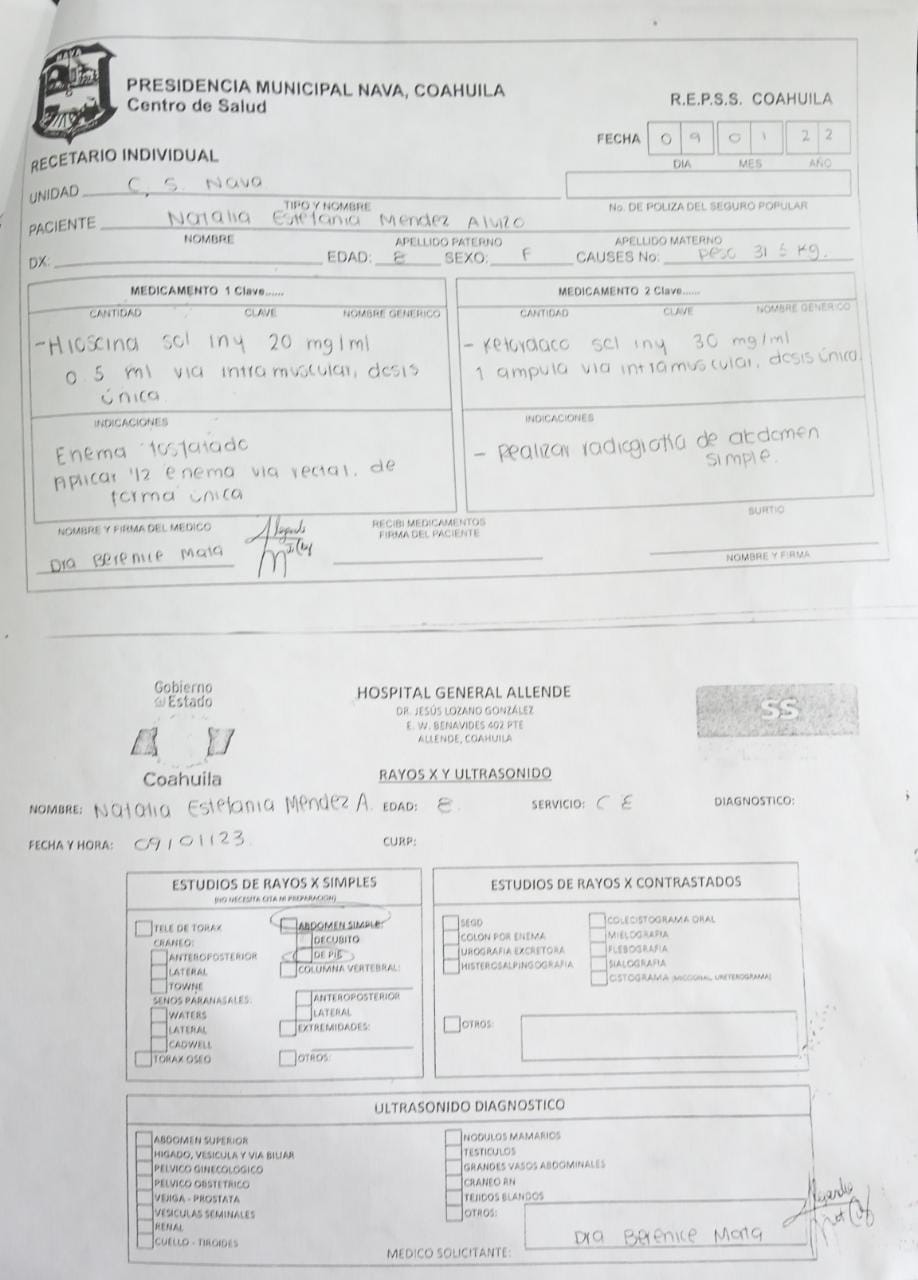 NAVA
PRESIDENCIA MUNICIPAL NAVA, COAHUILA
Centro de Salud
R.E.P.S.S. COAHUILA
FECHA 09 01 22
DIA MES AÑO
RECETARIO INDIVIDUAL
UNIDAD C. S. Nava
TIPO Y NOMBRE
No. DE POLIZA DEL SEGURO POPULAR
PACIENTE Natalia Estefania Mendez Alvizo
NOMBRE APELLIDO PATERNO APELLIDO MATERNO
DX: EDAD: 8 SEXO: F CAUSES No: peso 31 5 Kg.
MEDICAMENTO 1 Clave......
CANTIDAD CLAVE NOMBRE GENERICO
- Hioscina sol iny 20 mg/ml
0.5 ml via intramuscular, dosis
única
INDICACIONES
Enema fosfatado
Aplicar 1/2 enema via rectal. de
forma única
MEDICAMENTO 2 Clave......
CANTIDAD CLAVE NOMBRE GENERICO
- Ketorolaco sol iny 30 mg/ml
1 ampula via intramuscular, dosis única
INDICACIONES
- Realizar radiografía de abdomen
simple.
NOMBRE Y FIRMA DEL MEDICO
Dra Berenice Mata
RECIBI MEDICAMENTOS
FIRMA DEL PACIENTE
SURTIO
NOMBRE Y FIRMA
Gobierno
de Estado
Coahuila
HOSPITAL GENERAL ALLENDE
DR. JESÚS LOZANO GONZÁLEZ
E. W. BENAVIDES 402 PTE
ALLENDE, COAHUILA
SS
RAYOS X Y ULTRASONIDO
NOMBRE: Natalia Estefania Mendez A. EDAD: 8 SERVICIO: C E DIAGNOSTICO:
FECHA Y HORA: 09/01/23. CURP:
ESTUDIOS DE RAYOS X SIMPLES
(NO NECESITA CITA NI PREPARACION)
TELE DE TORAX
CRANEO:
ANTEROPOSTERIOR
LATERAL
TOWNE
SENOS PARANASALES:
WATERS
LATERAL
CADWELL
TORAX OSEO
ABDOMEN SIMPLE:
DECUBITO
DE PIE
COLUMNA VERTEBRAL:
ANTEROPOSTERIOR
LATERAL
EXTREMIDADES:
OTROS:
ESTUDIOS DE RAYOS X CONTRASTADOS
SEGD
COLON POR ENEMA
UROGRAFIA EXCRETORA
HISTEROSALPINGOGRAFIA
COLECISTOGRAMA ORAL
MIELOGRAFIA
FLEBOGRAFIA
SIALOGRAFIA
CISTOGRAMA (MICCIONAL, URETEROGRAMA)
OTROS:
ULTRASONIDO DIAGNOSTICO
ABDOMEN SUPERIOR
HIGADO, VESICULA Y VIA BILIAR
PELVICO GINECOLOGICO
PELVICO OBSTETRICO
VEJIGA - PROSTATA
VESICULAS SEMINALES
RENAL
CUELLO - TIROIDES
NODULOS MAMARIOS
TESTICULOS
GRANDES VASOS ABDOMINALES
CRANEO RN
TEJIDOS BLANDOS
OTROS:
MEDICO SOLICITANTE: Dra Berenice Mata